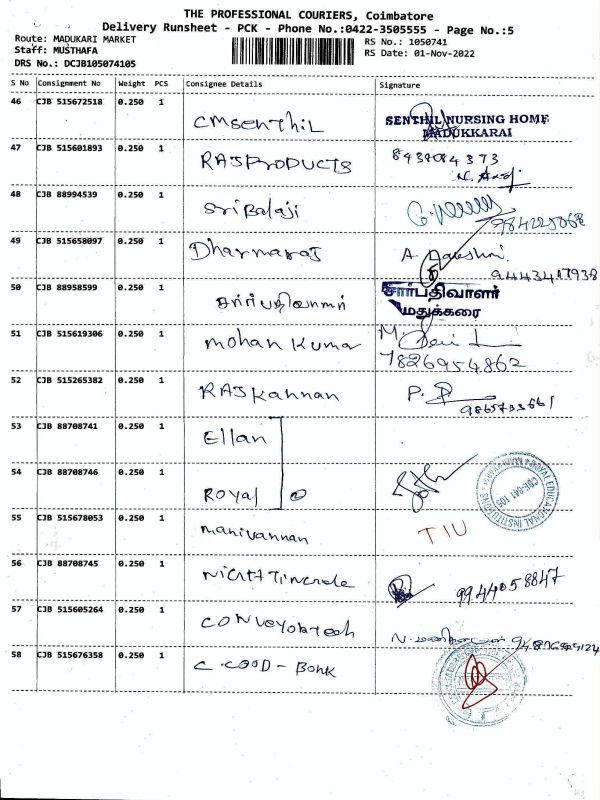 THE PROFESSIONAL COURIERS, Coimbatore
Delivery Runsheet - PCK - Phone No.:0422-3505555 - Page No.:5
Route: MADUKARI MARKET
RS No.: 1050741
Staff: MUSTHAFA
RS Date: 01-Nov-2022
DRS No.: DCJB105074105
S No Consignment No Weight PCS Consignee Details Signature
46 CJB 515672518 0.250 1 CMSenthil SENTHIL NURSING HOME
MADUKKARAI
47 CJB 515601893 0.250 1 RAJPRODUCTS
48 CJB 88994539 0.250 1 Sri Balaji
49 CJB 515658097 0.250 1 Dharmaraj
50 CJB 88958599 0.250 1 சார்பதிவாளர் சார்பதிவாளர்
மதுக்கரை
51 CJB 515619306 0.250 1 mohan Kumar M.
7826954862
52 CJB 515265382 0.250 1 RAJkannan P.
53 CJB 88708741 0.250 1 Ellan
54 CJB 88708746 0.250 1 Royal ROYAL EDUCATIONAL INSTITUTIONS
CBE-641 105
55 CJB 515678053 0.250 1 manivannan TIU
56 CJB 88708745 0.250 1 9944058847
57 CJB 515605264 0.250 1 CONveyorTech
58 CJB 515676358 0.250 1 C.COOD - Bank